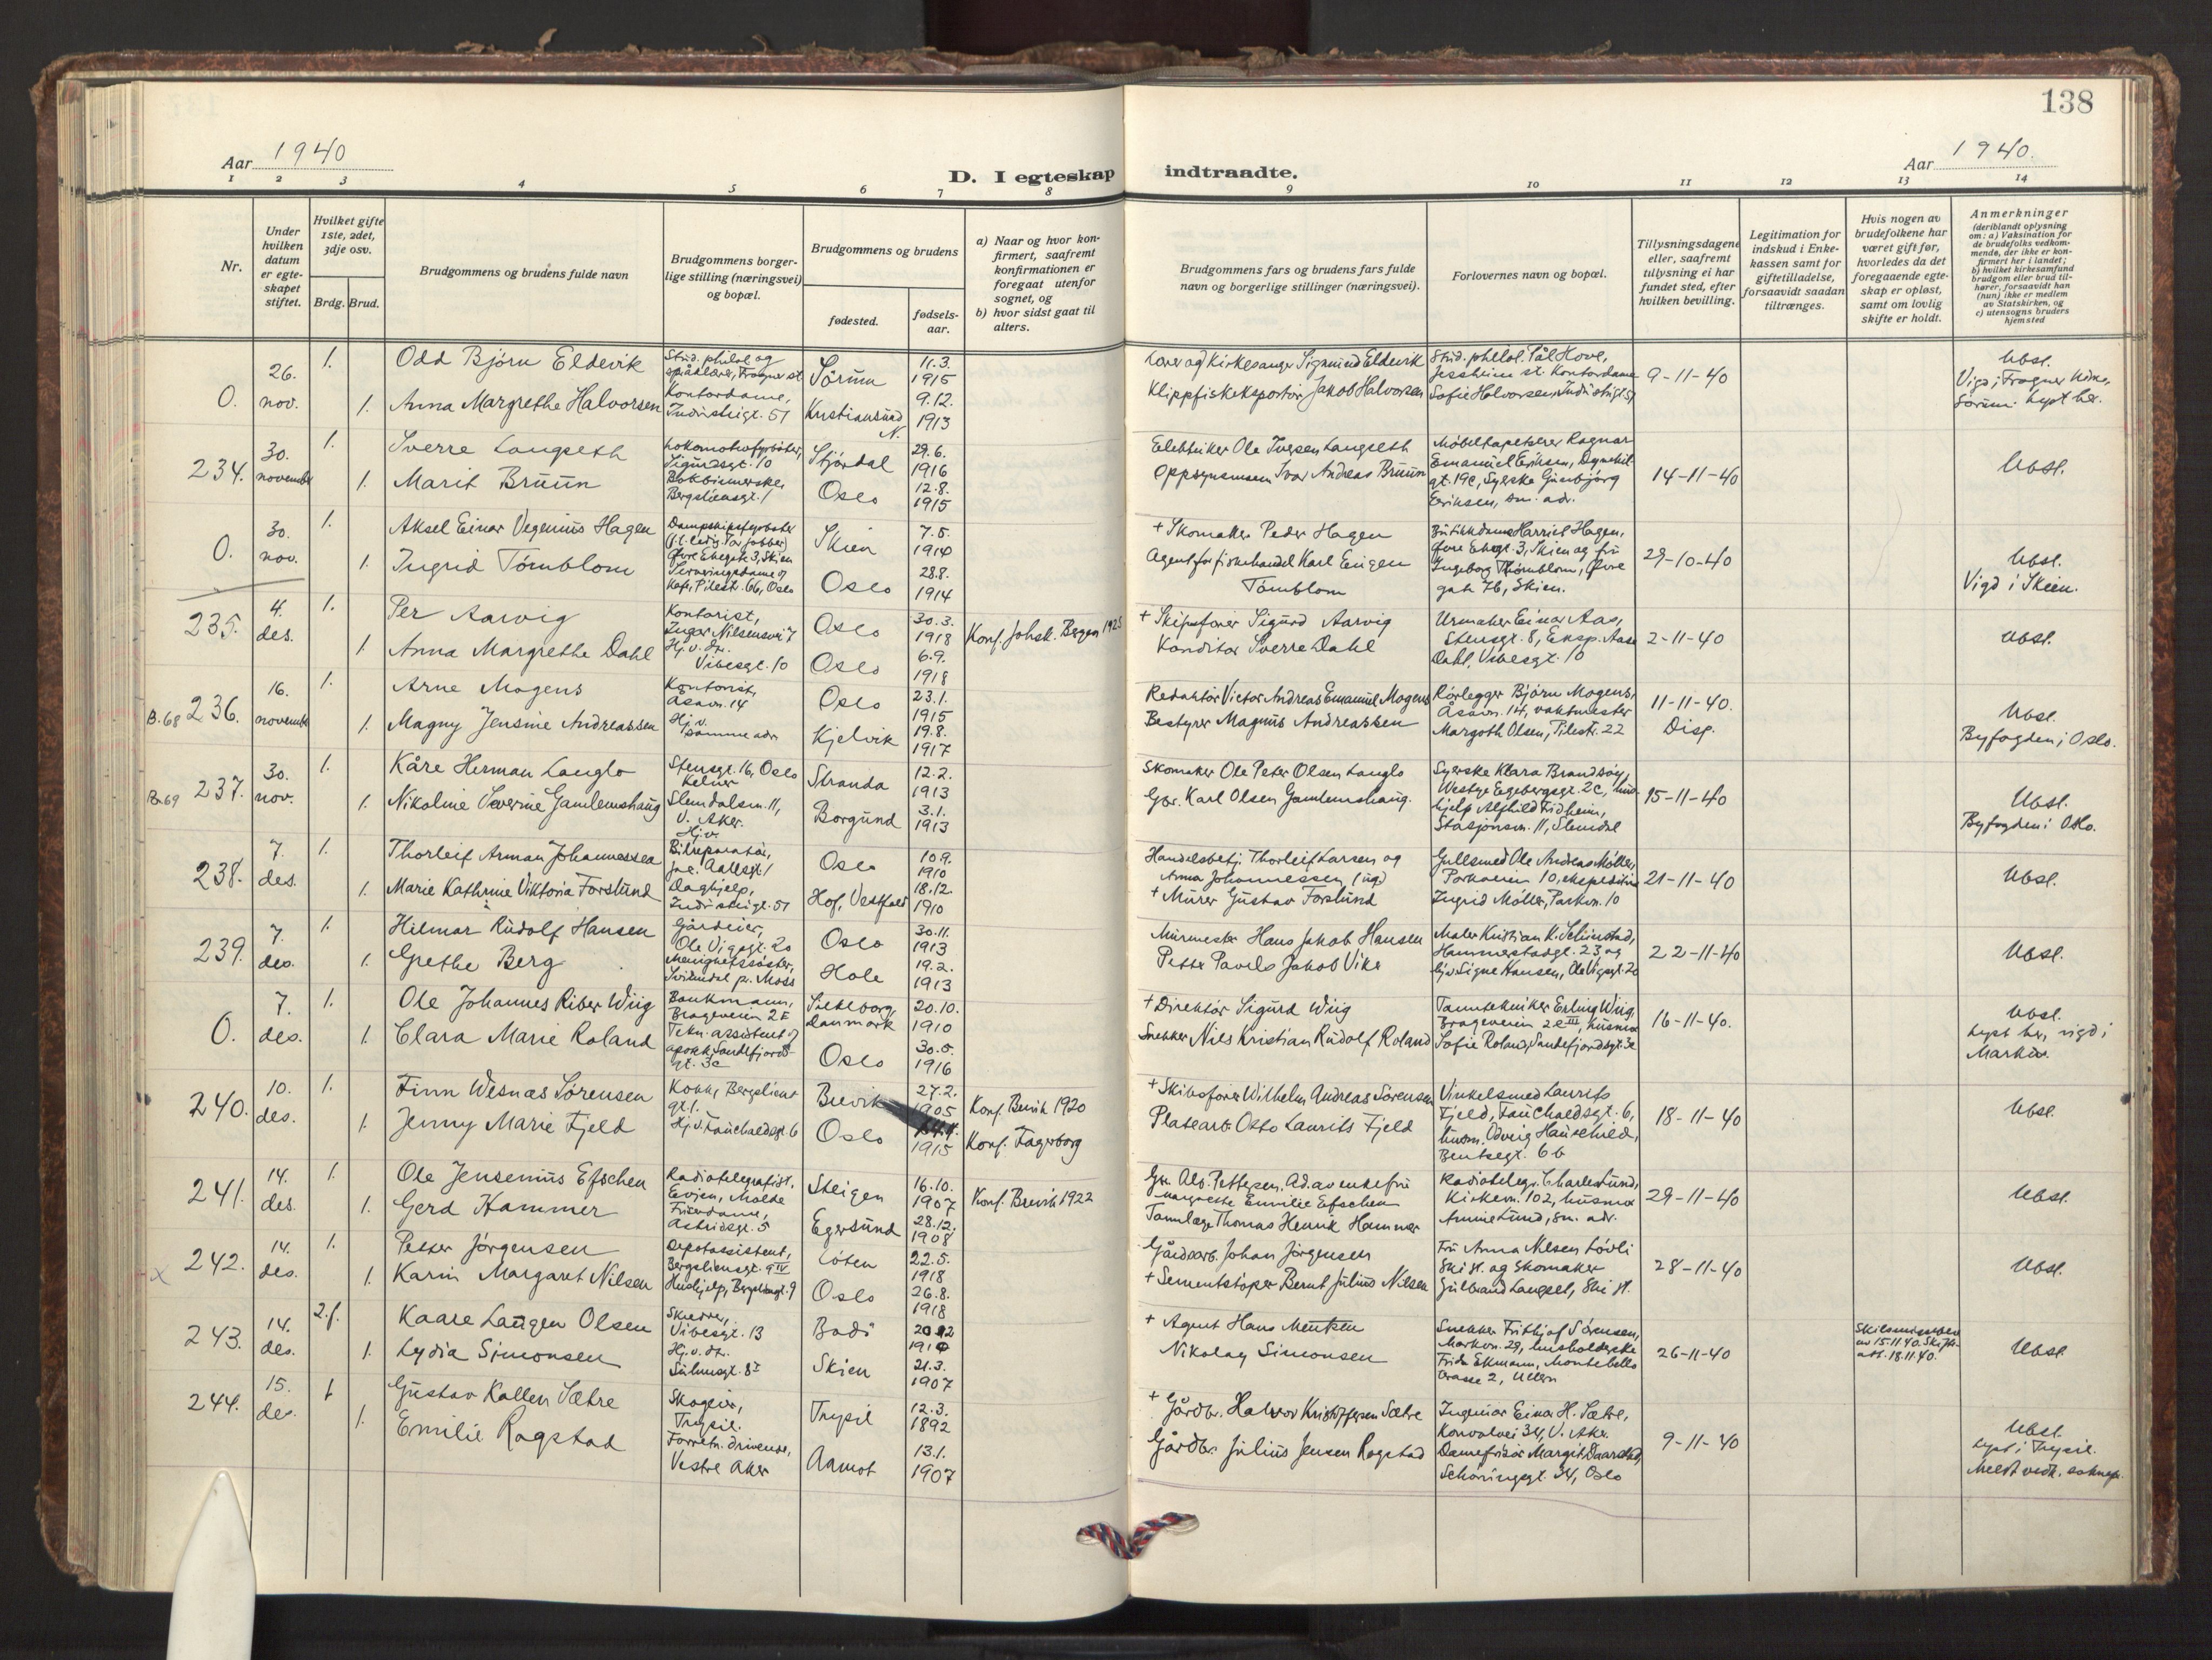 138
Aar 1940
D. I egteskap indtraadte.
Aar 1940.
1 2 3 4 5 6 7 8 9 10 11 12 13 14
Nr.
Under hvilken datum er egteskapet stiftet.
Hvilket gifte 1ste, 2det, 3dje osv.
Brdg. Brud.
Brudgommens og brudens fulde navn
Brudgommens borgerlige stilling (næringsvei) og bopæl.
Brudgommens og brudens
fødested.
fødselsaar.
a) Naar og hvor konfirmert, saafremt konfirmationen er foregaat utenfor sognet, og
b) hvor sidst gaat til alters.
Brudgommens fars og brudens fars fulde navn og borgerlige stillinger (næringsvei).
Forlovernes navn og bopæl.
Tillysningsdagene eller, saafremt tillysning ei har fundet sted, efter hvilken bevilling.
Legitimation for indskud i Enkekassen samt for giftetilladelse, forsaavidt saadan tiltrænges.
Hvis nogen av brudefolkene har været gift før, hvorledes da det foregaaende egteskap er opløst, samt om lovlig skifte er holdt.
Anmerkninger (deriblandt oplysning om: a) Vaksination for de brudefolks vedkommende, der ikke er konfirmert her i landet; b) hvilket kirkesamfund brudgom eller brud tilhører, forsaavidt han (hun) ikke er medlem av Statskirken, og c) utensogns bruders hjemsted
0. 26. nov. 1. Odd Bjørn Eldevik Stud. philol og Sørum 11.3. 1915
1. Anna Margrethe Halvorsen Kontordame, Industrigt. 51 Kristiansund N. 9.12. 1913
Lærer og Kirkesanger Sigmund Eldevik
Klippfiskeksportør Jakob Halvorsen
Stud. philol. Pål Hove, Jessheim st. Kontordame Sofie Halvorsen, Industrigt. 51
9-11-40
Ubsl. Vigd i Frogner Sørum. Lyst her.
234. 30. november 1. Sverre Langseth Lokomotivfyrbøter, Sigurdsgt. 10 Stjørdal 29.6. 1916
1. Marit Bruun Bokbinderske, Bergsliensgt. 1 Oslo 12.8. 1915
Elektriker Ole Iversen Langseth
Oppsynsmann Ivar Andreas Bruun
Møbeltapetserer Ragnar Emanuel Eriksen, gt. 19c, Syerske Gunbjørg Eriksen, sm. adr.
14-11-40
Ubsl.
0. 30. nov. 1. Aksel Einar Vegenius Hagen Dampskipsfyrbøter Øvre Elvegate 3, Skien Skien 7.5. 1914
1. Ingrid Tømblom Serveringsdame Kafe, Pilestr. 66, Oslo Oslo 28.8. 1914
+ Skomaker Peder Hagen
Agent for fiskehandel Karl Eugen Tømblom
Butikkdame Harriet Hagen, Øvre Elvegt. 3, Skien og fru Ingeborg Thømblom, Øvre gate 76, Skien.
29-10-40
Ubsl. Vigd i Skien.
235. 4. des. 1. Per Aarvig Kontorist, Inger Nilsensvei 7 Oslo 30.3. 1918 Konf. Johsk. Bergen
1. Anna Margrethe Dahl Hj. v. Vibesgt. 10 Oslo 6.9. 1918
+ Skipsfører Sigurd Aarvig
Konditor Sverre Dahl
Urmaker Einar Aas, Stensgt. 8, Eksp. Aase Dahl, Vibesgt. 10
2-11-40
Ubsl.
B.68 236. 16. november 1. Arne Mogens Kontorist, Åsavn. 14 Oslo 23.1. 1915
1. Magny Jensine Andreassen Hj. v. samme adr. Kjelvik 19.8. 1917
Redaktør Victor Andreas Emanuel Mogens
Bestyrer Magnus Andreassen
Rørlegger Bjørn Mogens, Åsavn. 14, vaktmester Margoth Olsen, Pilestr. 22
11-11-40. Disp.
Ubsl. Byfogden i Oslo.
B.69 237. 30. nov. 1. Kåre Herman Langlo Stensgt. 16, Oslo Kelner Stranda 12.2. 1913
1. Nikoline Severine Gamlemshaug Slemdalsvn. 11, V. Aker. Hj. v. Borgund 3.1. 1913
Skomaker Ole Peter Olsen Langlo
Gbr. Karl Olsen Gamlemshaug.
Syerske Klara Brandsøy, Westye Egebergsgt. 2c, hjelp Alfhild Fidheim, Stasjonsvn. 11, Slemdal
15-11-40
Ubsl. Byfogden i Oslo.
238. 7. des. 1. Thorleif Arman Johannessen Bilreparatør, Jac. Aallsgt. 1 Oslo 10.9. 1910
1. Marie Kathrine Viktoria Forslund Daghjelp, Industrigt. 51 Hof, Vestfold 18.12. 1910
Handelsbetj. Thorleif Larsen og Anna Johannessen (ug.)
+ Murer Gustav Forslund
Gullsmed Ole Andreas Møller, Parkveien 10, ekspeditrise Ingrid Møller, Parkvn. 10
21-11-40
Ubsl.
239. 7. des. 1. Hilmar Rudolf Hansen Gårdeier, Ole Vigsgt. 20 Oslo 30.11. 1913
1. Grethe Berg Menighetssøster, Svinndal p. Moss Hole 19.2. 1913
Murmester Hans Jakob Hansen
Petter Pavels Jakob Vike
Maler Kristian K. Hammerstadgt. 23 og hjv. Signe Hansen, Ole Vigsgt. 20
22-11-40
Ubsl.
0. 7. des. 1. Ole Johannes Riber Wiig Bankmann, Brageveien 2E Silkeborg, Danmark 20.10. 1910
1. Clara Marie Roland Tekn. assistent Sandefjordsgt. 3c Oslo 30.5. 1916
+ Direktør Sigurd Wiig
Snekker Nils Kristian Rudolf Roland
Tanntekniker Erling Wiig, Brageveien 2E III, husmor Sofie Roland, Sandefjordsgt. 3c
16-11-40.
Ubsl. Lyst her, vigd i Markus.
240. 10. des. 1. Finn Wesnæs Sørensen Kokk, Bergsliensgt. 1. Brevik 27.2. 1905 Konf. Brevik 1920
1. Jenny Marie Fjeld Hj. v. Fauchaldsgt. 6 Oslo 1915 Konf. Fagerborg
+ Skibsfører Wilhelm Andreas Sørensen
Platearb. Otto Laurits Fjeld
Vinkelsmed Laurits Fjeld, Fauchaldsgt. 6, husm. Odveig Hauschild, Bentsegt. 6b
18-11-40
Ubsl.
241. 14. des. 1. Ole Jensenius Efschen Radiotelegrafist, Molde Steigen 16.10. 1907 Konf. Brevik 1922
1. Gerd Hammer Frisørdame, Astridsgt. 5 Egersund 28.12. 1908
Margrethe Emilie Efschen
Tannlæge Thomas Henrik Hammer
Radiotelegr. Charles Lund, Kirkevn. 102, husmor Annie Lund, sm. adr.
29-11-40
Ubsl.
x 242. 14. des. 1. Petter Jørgensen Depotassistent, Bergsliensgt. 9 IV Løten 22.5. 1918
1. Karin Margaret Nilsen Hushjelp, Bergsliensgt. 9 Oslo 26.8. 1918
Gårdsarb. Johan Jørgensen
+ Sementstøper Bernt Julius Nilsen
Fru Anna Nilsen Løvli Ski st. og Skomaker Gulbrand Langset, Ski st.
28-11-40
Ubsl.
243. 14. des. 2.f. Kaare Laugen Olsen Vibesgt. 13 Bodø
1. Lydia Simonsen Hj. v. Skien 21.3. 1907
+ Agent Hans Mentzen
Nikolay Simonsen
Snekker Frithjof Sørensen, Markvn. 29, husholderske Frida Ekmann, Montebello terasse 2, Ullern
26-11-40
Skilsmissebev. av 15.11.40. Skifteatt. 18.11.40.
Ubsl.
244. 15. des. 1 Gustav Kallen Sætre Skogeier, Trysil. Trysil 12.3. 1892
1. Emilie Rogstad Forretn. drivende, Vestre Aker Aamot 13.1. 1907
+ Gårdbr. Halvor Kristoffersen Sætre
Gårdbr. Julius Jensen Rogstad
Ingeniør Einar H. Sætre, Konvalvei 34, V. Aker. Damefrisør Margit Schøningsgt. 34, Oslo
9-11-40
Ubsl. Lyst i Trysil.